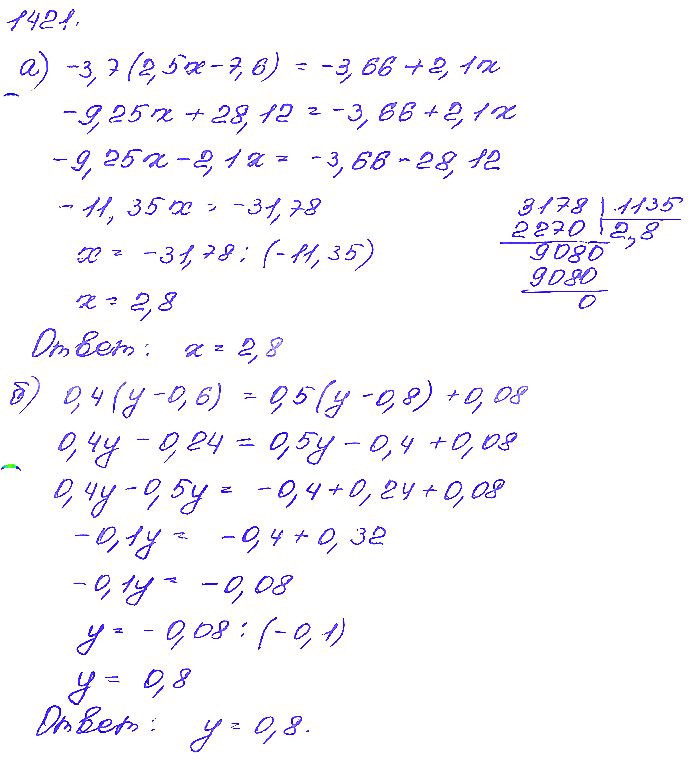 1421.
а) -3,7(2,5x-7,6) = -3,66+2,1x
-9,25x+28,12=-3,66+2,1x
-9,25x-2,1x= -3,66-28,12
-11,35x=-31,78
x= -31,78:(-11,35)
x=2,8
3178 | 1135
2270 | 2,8
9080
9080
0
Ответ: x=2,8
б) 0,4(y-0,6) = 0,5(y-0,8)+0,08
0,4y-0,24=0,5y-0,4+0,08
0,4y-0,5y= -0,4+0,24+0,08
-0,1y= -0,4+0,32
-0,1y= -0,08
y= -0,08:(-0,1)
y= 0,8
Ответ: y=0,8.